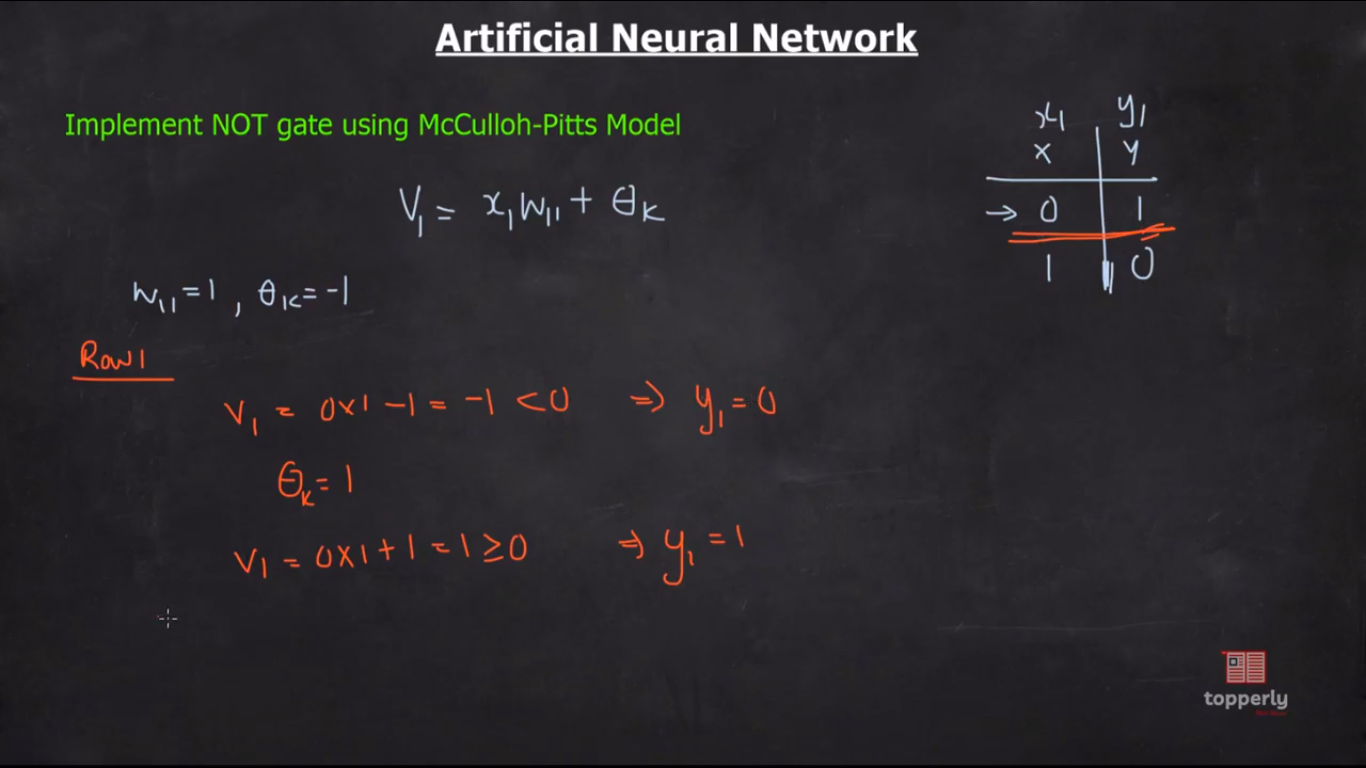 Artificial Neural Network
Implement NOT gate using McCulloh-Pitts Model
x₁ y₁
x y
→ 0 1
1 0
V₁ = x₁W₁₁ + θₖ
W₁₁ = 1 , θₖ = -1
Row 1
V₁ = 0x1 - 1 = -1 < 0 ⇒ y₁ = 0
θₖ = 1
V₁ = 0x1 + 1 = 1 ≥ 0 ⇒ y₁ = 1
topperly